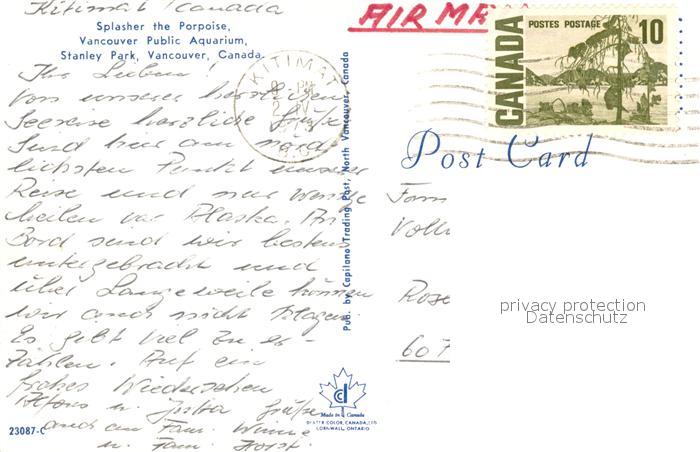 Kitimat Canada
Splasher the Porpoise,
Vancouver Public Aquarium,
Stanley Park, Vancouver, Canada.
Ihr Lieben!
Von unserer herrlichen
Seereise herzliche Grüße
Sind hier am nörd-
lichsten Punkt unserer
Reise und nur wenige
Meilen vor Alaska. An
Bord sind wir bestens
untergebracht und
über Langeweile können
wir auch nicht klagen.
Es gibt viel zu er-
zählen. Auf ein
frohes Wiedersehen
Alfons u. Jutta Grüße
auch an Fam.
u. Fam. Horst.
23087-C
Pub. by Capilano Trading Post, North Vancouver, Canada
Made in Canada
DEXTER COLOR, CANADA, LTD
CORNWALL, ONTARIO
AIR MAIL
KITIMAT
POSTES POSTAGE
CANADA
10
Post Card
Fam
Volk
Rose
607
privacy protection
Datenschutz